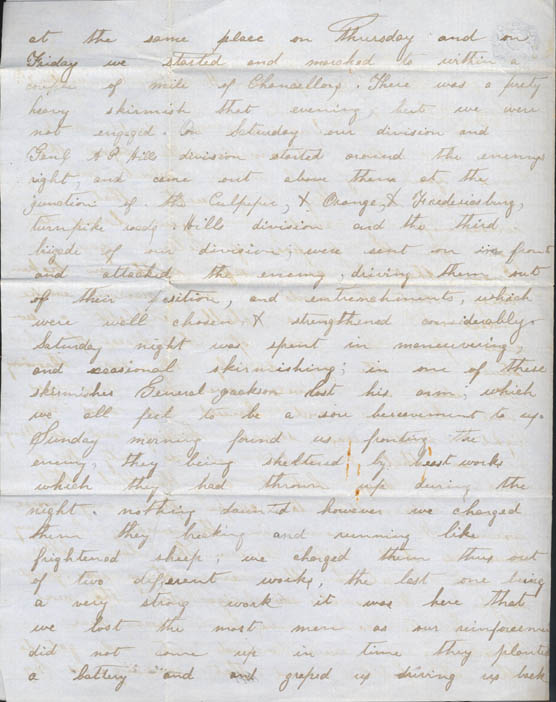 at the same place on Thursday and on
Friday we started and marched to within a
couple of mile of Chancellors. There was a prety
heavy skirmish that evening, but we were
not engaged. On Saturday our division and
Genl A P Hills division started around the enemys
right, and came out above them at the
junction of the Culpeper, & Orange, & Fredericsburg,
turnpike roads. Hills division and the third
brigade of our division, were sent on in front
and attacked the enemy, driving them out
of their position, and entrenchments, which
were well chosen & strengthened considerably.
Saturday night was spent in maneuvering,
and occasional skirmishing; in one of these
skirmishes General Jackson lost his arm, which
we all feel to be a sore bereavement to us.
Sunday morning found us fronting the
enemy, they being sheltered by breast works
which they had thrown up during the
night. nothing daunted however we charged
them they breaking and running like
frightened sheep; we charged them thus out
of two different works, the last one being
a very strong work it was here that
we lost the most men as our reinforcemen
did not come up in time they planted
a battery and and graped us driving us back